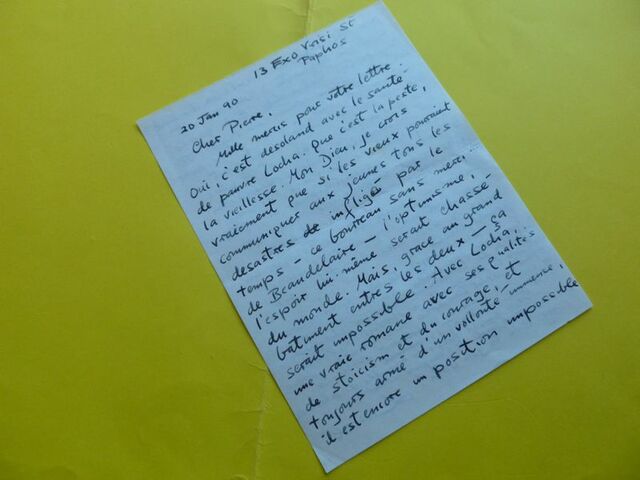 13 Exo Vrisi St
Paphos
20 Jan 90
Cher Pierre,
Mille mercis pour votre lettre.
Oui, c'est desoland avec le santé
de pauvre Locha. Que c'est la peste,
la vieillesse. Mon Dieu, je crois
vraiement que si les vieux pouvaient
communiquer aux jeunes tous les
desastres infligés par le
temps — ce bourreau sans merci
de Beaudelaire — l'optimisme,
l'espoir lui même serait chassé
du monde. Mais, grace au grand
batiment entres les deux — ça
serait impossible. Avec Locha,
une vraie romane avec ses qualités
de stoicism et du courage, et
toujours armé d'un vollonté immense,
il est encore un position impossible